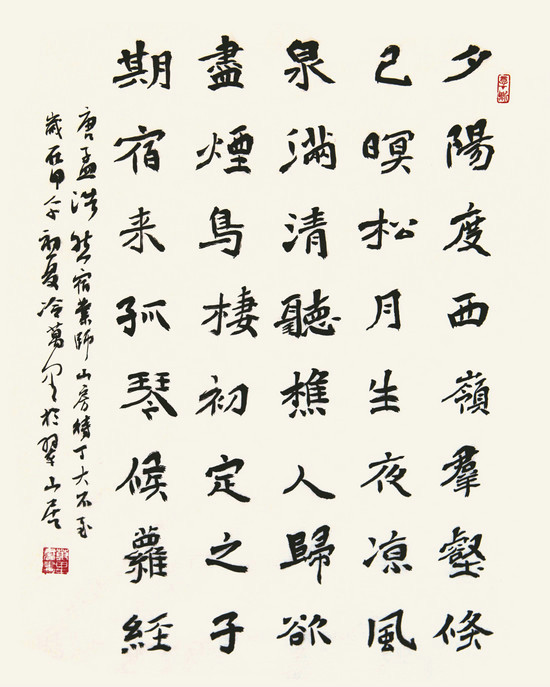 夕陽度西嶺羣壑倏
已暝松月生夜凉風
泉滿清聽樵人歸欲
盡煙鳥棲初定之子
期宿来孤琴候蘿經
唐孟浩然宿業師山房待丁大不至
歲在甲午初夏冷萬於翠山居